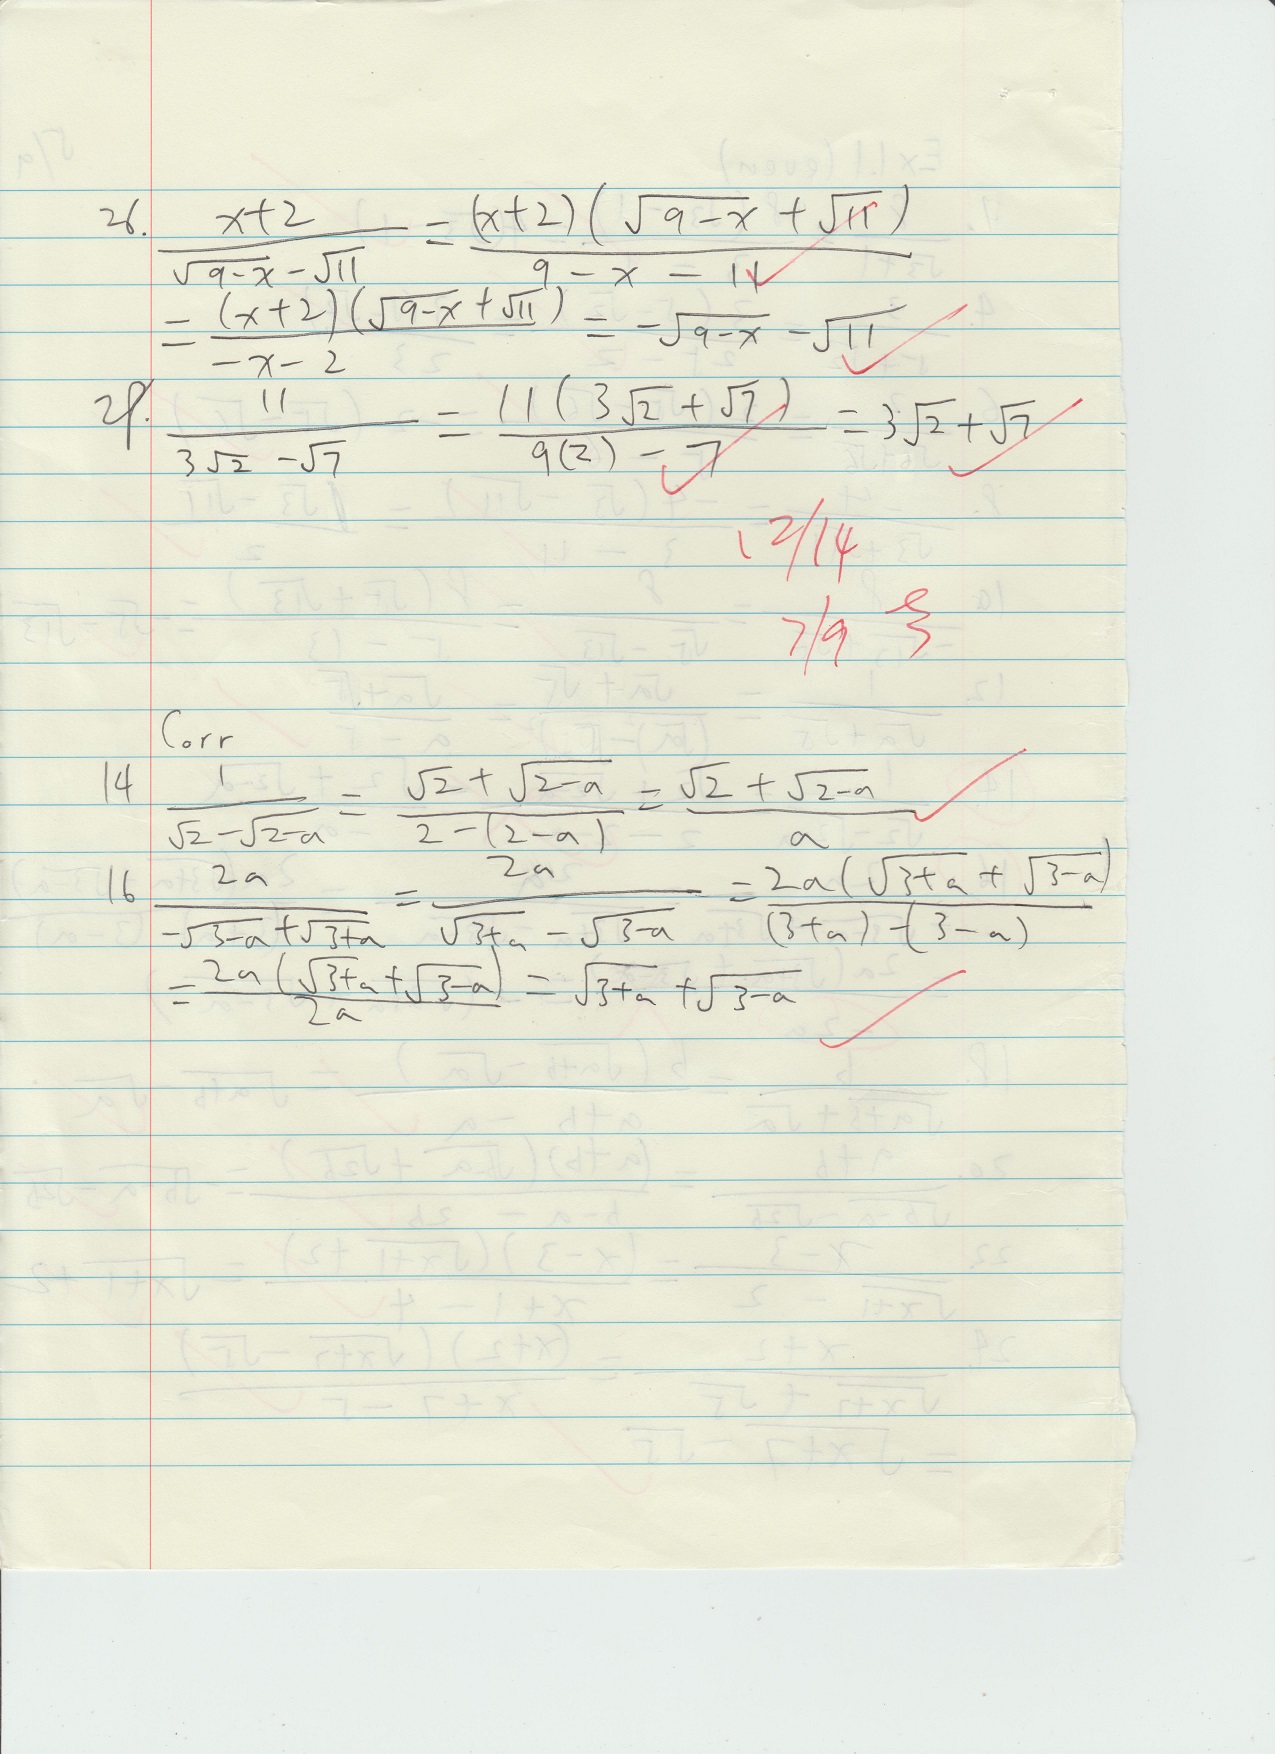 26. (x+2)/(√(9-x) - √11) = (x+2)(√(9-x) + √11)/(9 - x - 11)
= (x+2)(√(9-x) + √11)/(-x-2) = -√(9-x) - √11
28. 11/(3√2 - √7) = 11(3√2 + √7)/(9(2) - 7) = 3√2 + √7
12/14
7/9
Corr
14 1/(√2 - √(2-a)) = (√2 + √(2-a))/(2-(2-a)) = (√2 + √(2-a))/a
16 2a/(-√(3-a) + √(3+a)) = 2a/(√(3+a) - √(3-a)) = 2a(√(3+a) + √(3-a))/((3+a)-(3-a))
= 2a(√(3+a) + √(3-a))/2a = √(3+a) + √(3-a)